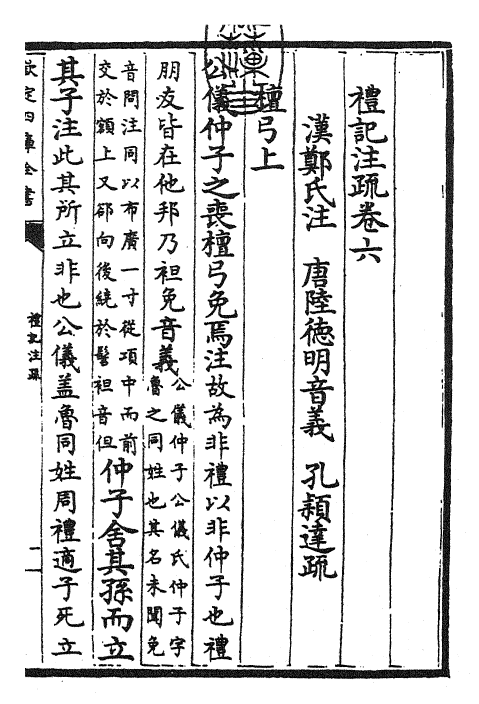 禮記注疏卷六
漢鄭氏注　唐陸德明音義　孔穎達疏
檀弓上
公儀仲子之喪檀弓免焉注故為非禮以非仲子也禮
朋友皆在他邦乃袒免音義公儀仲子公儀氏仲子字魯之同姓也其名未聞免
音問注同以布廣一寸從項中而前交於額上又郤向後繞於髻袒音但仲子舍其孫而立
其子注此其所立非也公儀盖魯同姓周禮適子死立
欽定四庫全書
禮記注疏